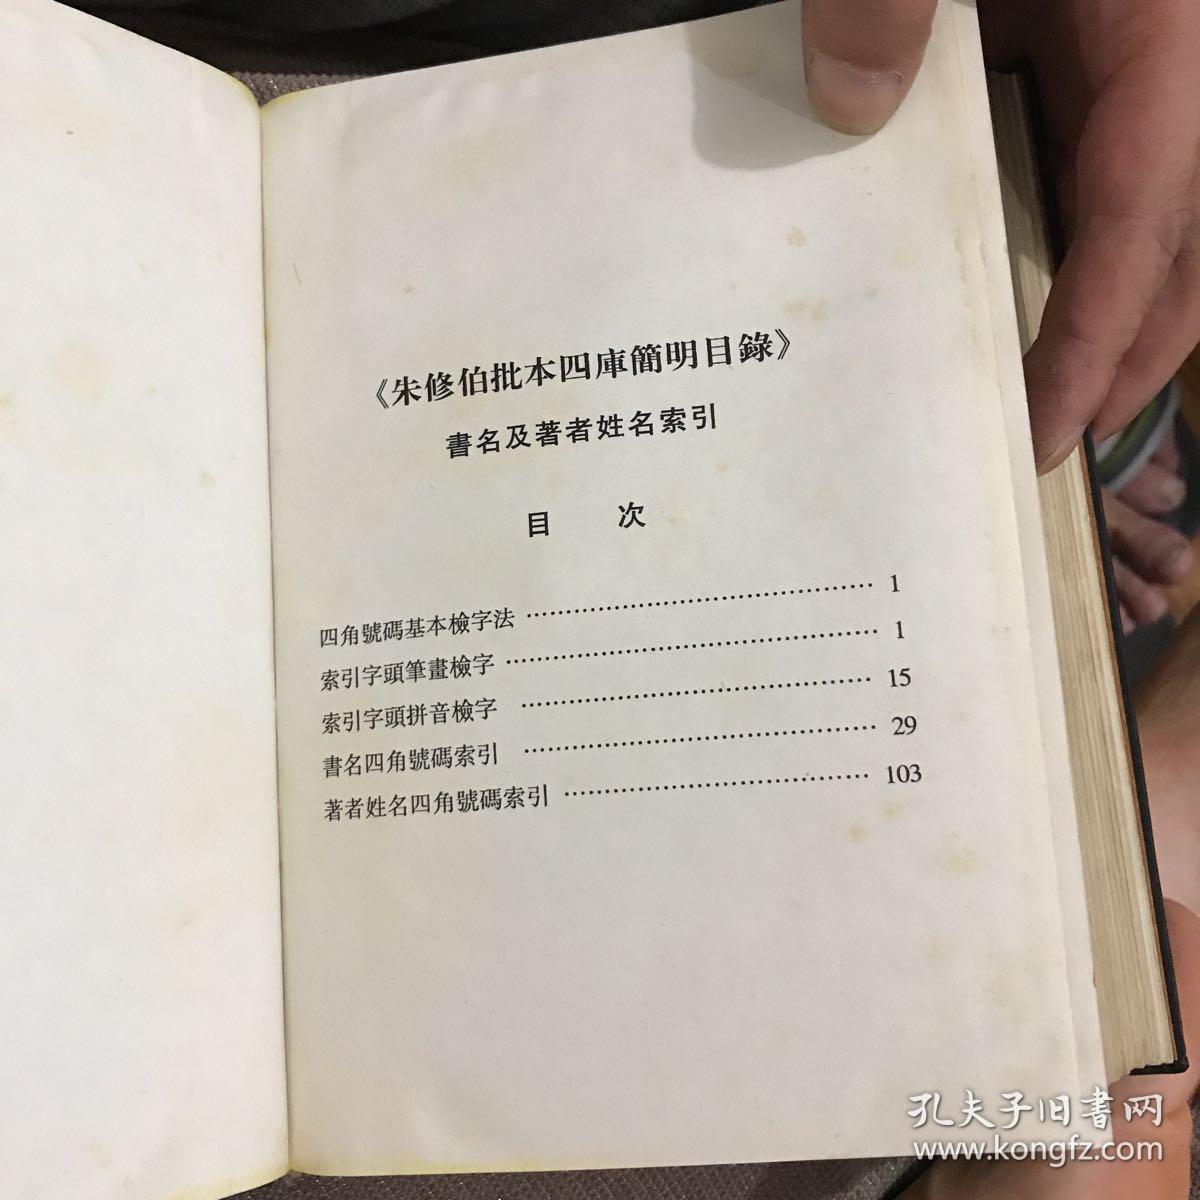 《朱修伯批本四庫簡明目錄》
書名及著者姓名索引
目 次
四角號碼基本檢字法 ⋯⋯⋯⋯⋯⋯⋯⋯⋯⋯⋯⋯ 1
索引字頭筆畫檢字 ⋯⋯⋯⋯⋯⋯⋯⋯⋯⋯⋯⋯ 1
索引字頭拼音檢字 ⋯⋯⋯⋯⋯⋯⋯⋯⋯⋯⋯⋯ 15
書名四角號碼索引 ⋯⋯⋯⋯⋯⋯⋯⋯⋯⋯⋯⋯ 29
著者姓名四角號碼索引 ⋯⋯⋯⋯⋯⋯⋯⋯⋯⋯ 103
孔夫子旧書网
www.kongfz.com